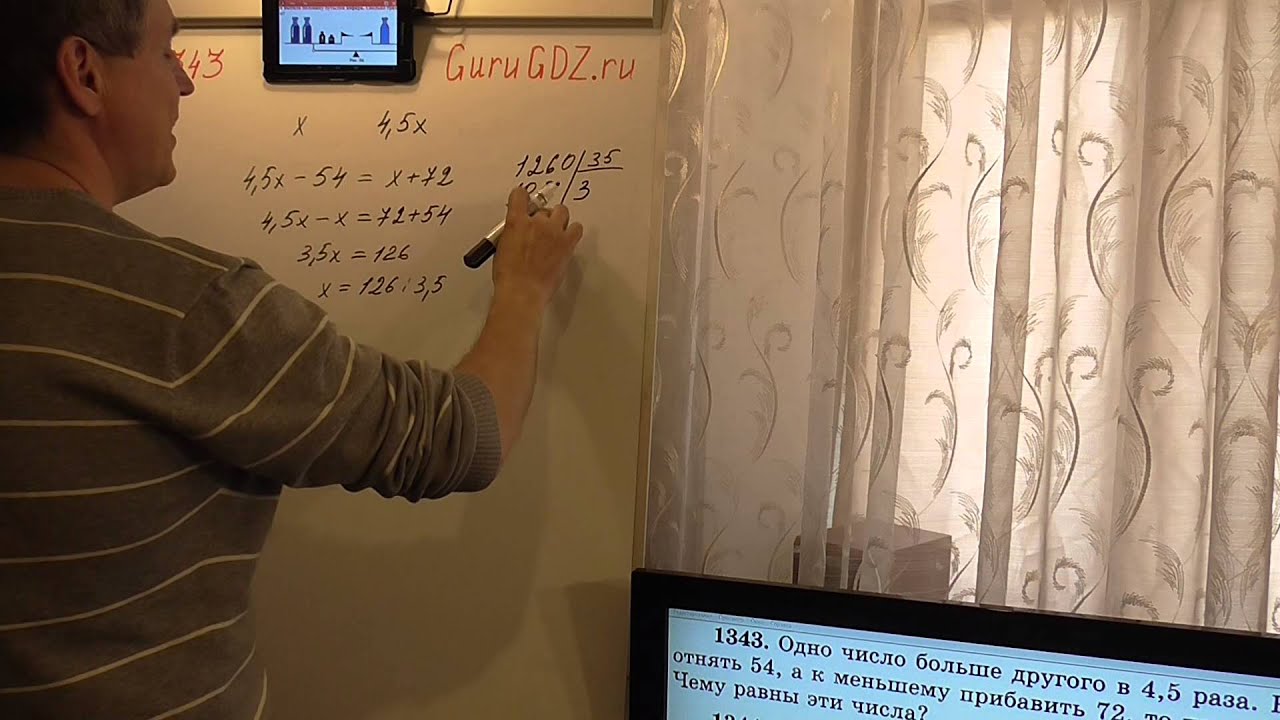 743
GuruGDZ.ru
x 4,5x
4,5x - 54 = x + 72
4,5x - x = 72 + 54
3,5x = 126
x = 126 : 3,5
1260 35
3
1343. Одно число больше другого в 4,5 раза.
отнять 54, а к меньшему прибавить 72, то
Чему равны эти числа?